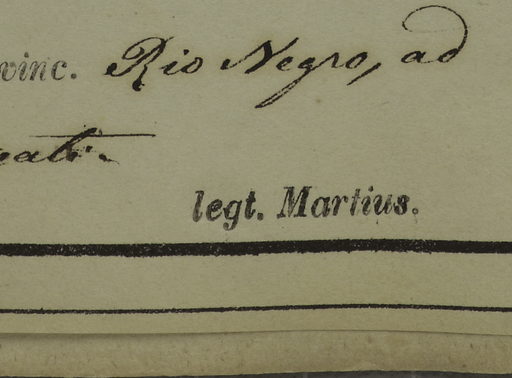 vinc. Rio Negro, ad
legt. Martius.